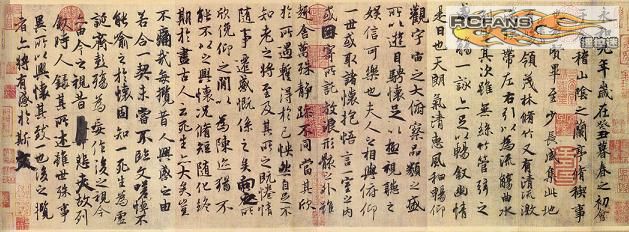 RCFANS
遥控迷
九年歲在癸丑暮春之初會
稽山陰之蘭亭脩稧事
畢至少長咸集此地
領茂林脩竹又有清流激
帶左右引以為流觴曲水
其次雖無絲竹管弦之
一詠亦足以暢敘幽情
是日也天朗氣清惠風和暢仰
觀宇宙之大俯察品類之盛
所以遊目騁懷足以極視聽之
娛信可樂也夫人之相與俯仰
一世或取諸懷抱悟言一室之內
或因寄所託放浪形骸之外雖
趣舍萬殊靜躁不同當其欣
於所遇暫得於己怏然自足不
知老之將至及其所之既惓情
隨事遷感慨係之矣向之所
欣俛仰之閒以為陳迹猶不
能不以之興懷況脩短隨化終
期於盡古人云死生亦大矣豈
不痛哉每攬昔人興感之由
若合一契未嘗不臨文嗟悼不
能喻之於懷固知一死生為虛
誕齊彭殤為妄作後之視今
亦由今之視昔悲夫故列
敘時人錄其所述雖世殊事
異所以興懷其致一也後之攬
者亦將有感於斯文